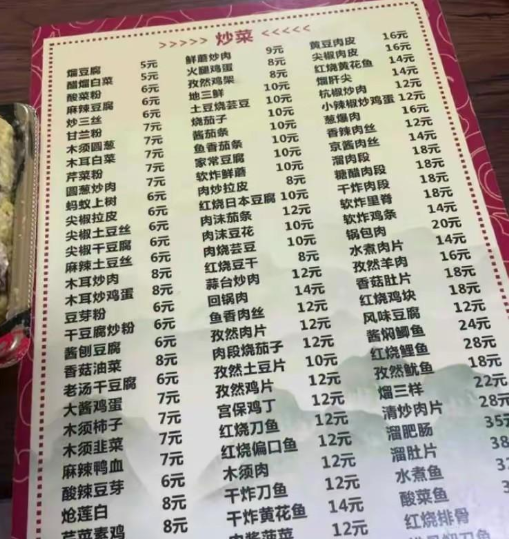 >>>>> 炒菜 <<<<<
熘豆腐 5元
醋熘白菜 5元
酸菜粉 6元
麻辣豆腐 6元
炒三丝 6元
甘兰粉 7元
木须圆葱 7元
木耳白菜 7元
芹菜粉 7元
圆葱炒肉 7元
蚂蚁上树 6元
尖椒拉皮 6元
尖椒土豆丝 6元
尖椒干豆腐 6元
麻辣土豆丝 6元
木耳炒肉 8元
木耳炒鸡蛋 8元
豆芽粉 6元
干豆腐炒粉 6元
酱刨豆腐 6元
香菇油菜 8元
老汤干豆腐 6元
大酱鸡蛋 7元
木须柿子 7元
木须韭菜 7元
麻辣鸭血 7元
酸辣豆芽 6元
炝莲白 8元
芹菜素鸡 8元
鲜蘑炒肉 9元
火腿鸡蛋 8元
孜然鸡架 8元
地三鲜 10元
土豆烧芸豆 10元
烧茄子 10元
酱茄条 10元
鱼香茄条 10元
家常豆腐 10元
软炸鲜蘑 10元
肉炒拉皮 8元
红烧日本豆腐 10元
肉沫茄条 12元
肉沫豆花 10元
肉烧芸豆 10元
红烧豆干 8元
蒜台炒肉 12元
回锅肉 14元
鱼香肉丝 12元
孜然肉片 12元
肉段烧茄子 12元
孜然土豆片 10元
孜然鸡片 12元
宫保鸡丁 12元
红烧刀鱼 12元
红烧偏口鱼 12元
木须肉 12元
干炸刀鱼 12元
干炸黄花鱼 14元
肉酱菠菜 12元
黄豆肉皮 16元
尖椒肉皮 16元
红烧黄花鱼 14元
熘肝尖 14元
杭椒炒肉 12元
小辣椒炒鸡蛋 12元
葱爆肉 16元
香辣肉丝 14元
京酱肉丝 14元
溜肉段 18元
糖醋肉段 18元
干炸肉段 18元
软炸里脊 18元
软炸鸡条 14元
锅包肉 20元
水煮肉片 14元
孜然羊肉 16元
香菇肚片 18元
红烧鸡块 18元
风味豆腐 12元
酱焖鲫鱼 24元
红烧鲤鱼 28元
孜然鱿鱼 18元
熘三样 22元
清炒肉片 28元
溜肥肠
溜肚片
水煮鱼
酸菜鱼
红烧排骨